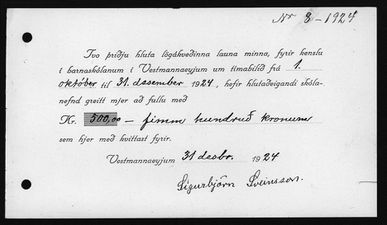 Nr 3-1924
Tvo þriðju hluta lögákveðinna launa minna, fyrir kenslu
í barnaskólanum í Vestmannaeyjum um tímabilið frá 1.
október til 31. desember 1924, hefir hlutaðeigandi skóla-
nefnd greitt mjer að fullu með
Kr. 500,00 – fimm hundruð krónum
sem hjer með kvittast fyrir.
Vestmannaeyjum 31 desbr. 1924
Sigurbjörn Sveinsson.